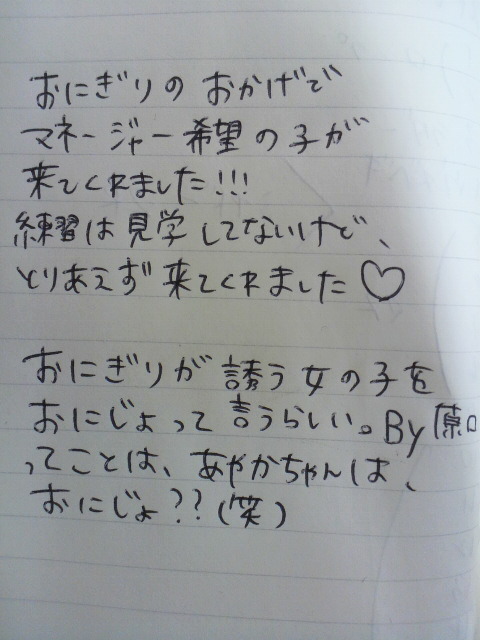 おにぎりの おかげで
マネージャー希望の子が
来てくれました!!!
練習は見学してないけど、
とりあえず来てくれました♡
おにぎりが誘う女の子を
おにじょって言うらしい。By原口
ってことは、あやかちゃんは、
おにじょ??(笑)